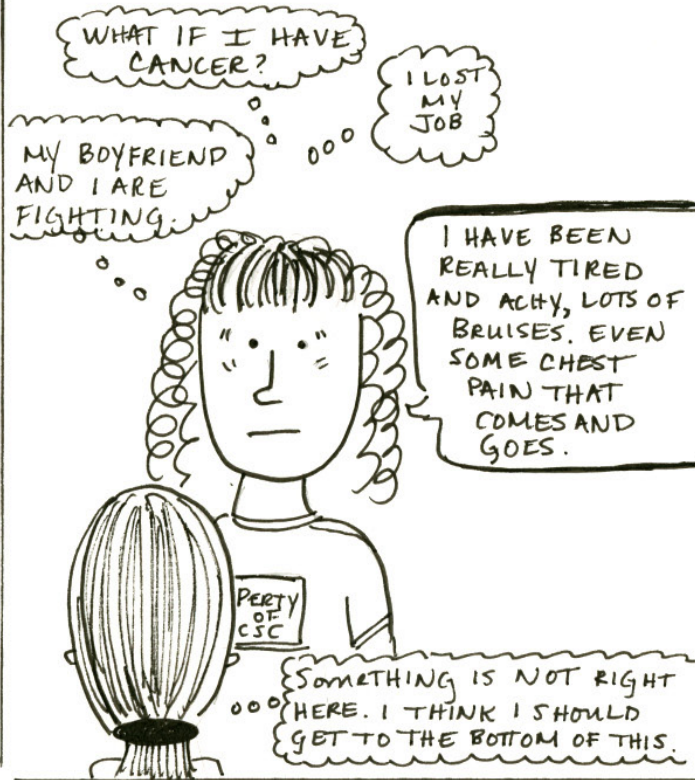 WHAT IF I HAVE
CANCER?
I LOST
MY
JOB
MY BOYFRIEND
AND I ARE
FIGHTING.
I HAVE BEEN
REALLY TIRED
AND ACHY, LOTS OF
BRUISES. EVEN
SOME CHEST
PAIN THAT
COMES AND
GOES.
PERTY
OF
CSC
SOMETHING IS NOT RIGHT
HERE. I THINK I SHOULD
GET TO THE BOTTOM OF THIS.